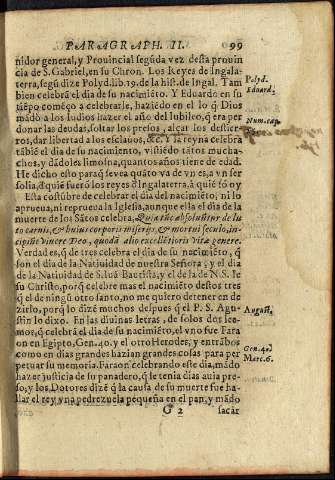 PARAGRAPH. II. 99
nidor general, y Prouincial segũda vez desta prouin
cia de S. Gabriel, en su Chron. Los Reyes de Ingala-
terra, segũ dize Polyd. lib. 19. de la hist. de Ingal. Tam
bien celebrã el dia de su nacimiẽto. Y Eduardo en su
Polyd.
Eduard.
tiẽpo començo a celebrarle, haziẽdo en el lo q̃ Dios
mãdò a los Iudios hazer el año del Iubileo, q̃ era per
donar las deudas, soltar los presos, alçar los destier-
Num. cap.
ros, dar libertad a los esclauos, &c. Y la reyna celebra
tãbiẽ el dia de su nacimiento, vistiẽdo tãtos mucha-
chos, y dãdoles limosna, quantos años tiene de edad.
He dicho esto paraq̃ se vea quãto va de vn es, a vn ser
solia, d̃ quiẽ fuerõ los reyes d̃ Ingalaterra, à quiẽ sõ oy
Esta costũbre de celebrar el dia del nacimiẽto, ni lo
aprueua, ni reprueua la Iglesia, aunque ella el dia de la
muerte de los Sãtos celebra, Quia tũc absoluitur de lu
to carnis, & huius corporis miserijs, & mortuis seculo, in-
cipiũt viuere Deo, quodã alio excellẽtioris vitæ genere.
Verdad es, q̃ de tres celebra el dia de su nacimiẽto, q̃
son el dia de la Natiuidad de nuestra Señora, y el dia
de la Natiuidad de S. Iuã Bautista, y el de la de N. S. Ie
su Christo, porq̃ celebre mas el nacimiẽto destos tres
q̃ el de ningũ otro santo, no me quiero detener en de
zirlo, porq̃ lo dizẽ muchos despues q̃ el P. S. Agu-
August.
stin lo dixo. En las diuinas letras, de solos dos lee-
mos, q̃ celebrã el dia de su nacimiẽto, el vno fue Fara
on en Egipto, Gen. 40. y el otro Herodes, y entrãbos
Gen. 40.
Marc. 6.
como en dias grandes hazian grandes cosas para per
petuar su memoria. Faraon celebrando este dia, mãdò
hazer justicia de su panadero, q̃ le tenia dias auia pre-
so, y los Dotores dizẽ q̃ la causa de su muerte fue ha-
llar el rey vna pedrezuela pequeña en el pan, y mãdò
G 2 sacar